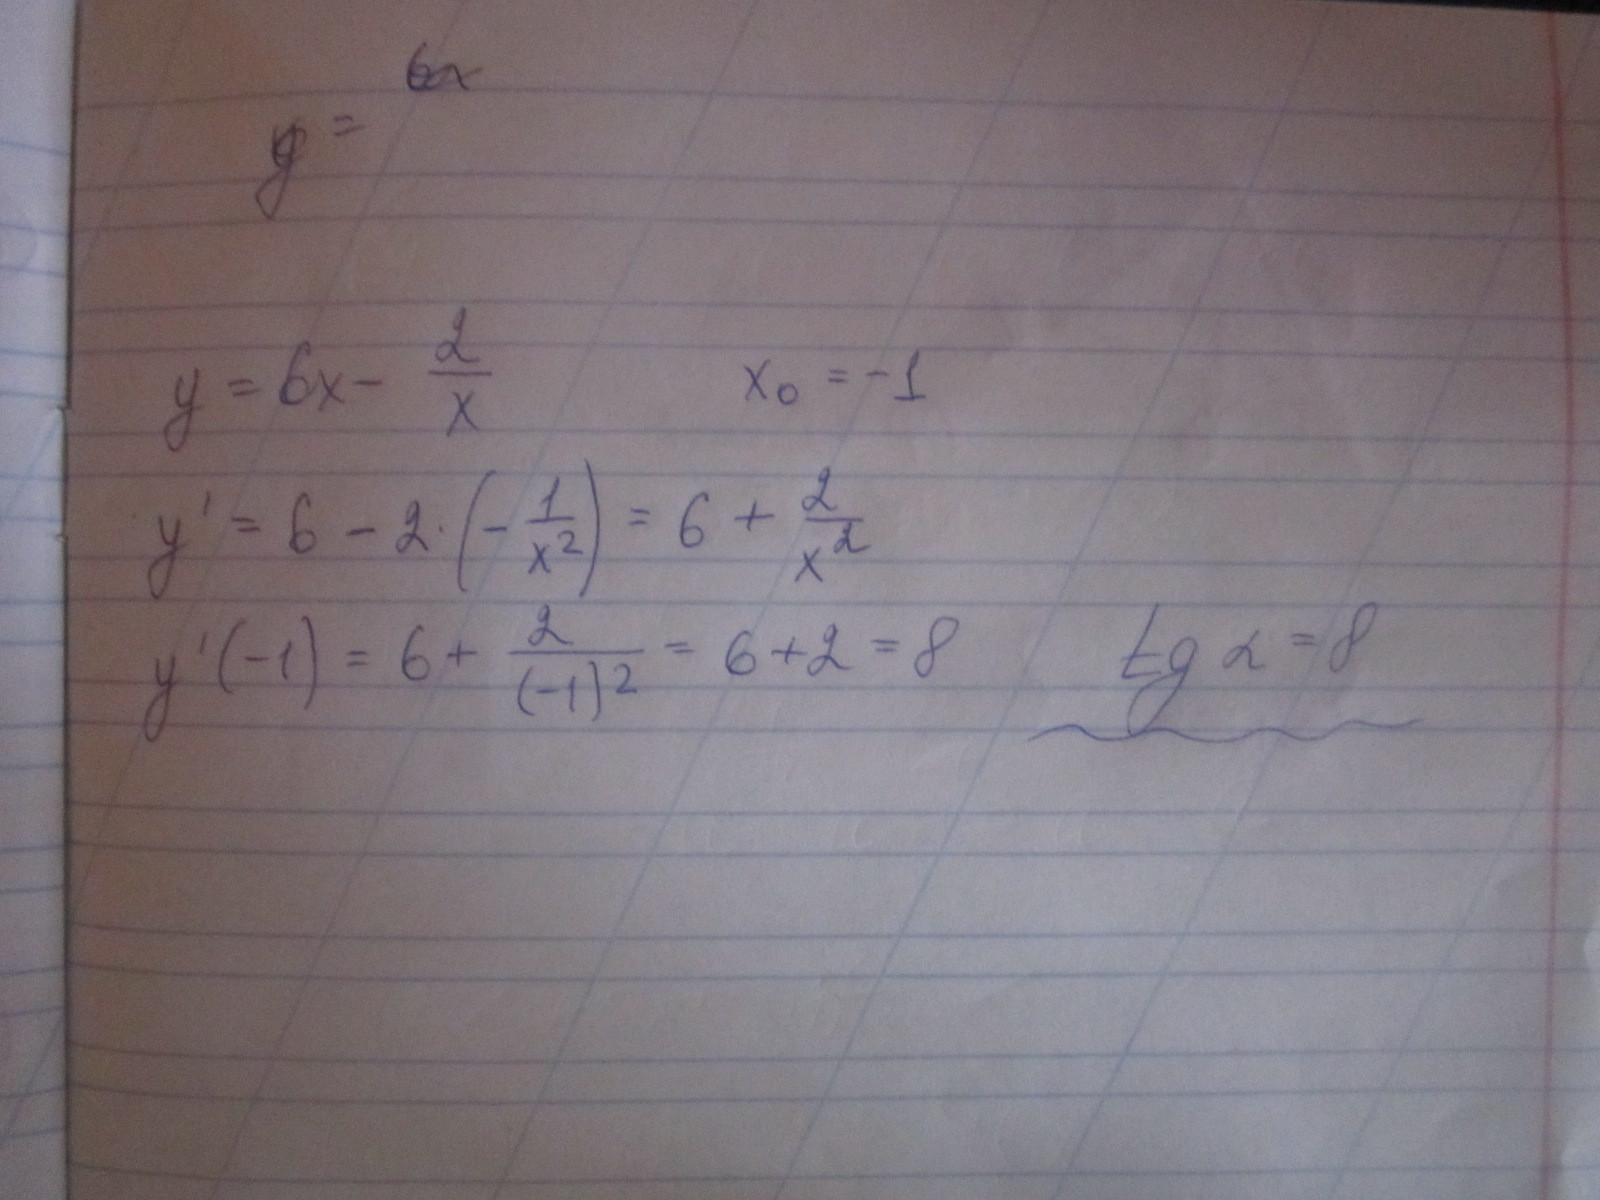 y = 6x
y = 6x - 2/x     x₀ = -1
y' = 6 - 2·(-1/x²) = 6 + 2/x²
y'(-1) = 6 + 2/(-1)² = 6+2 = 8     tg α = 8